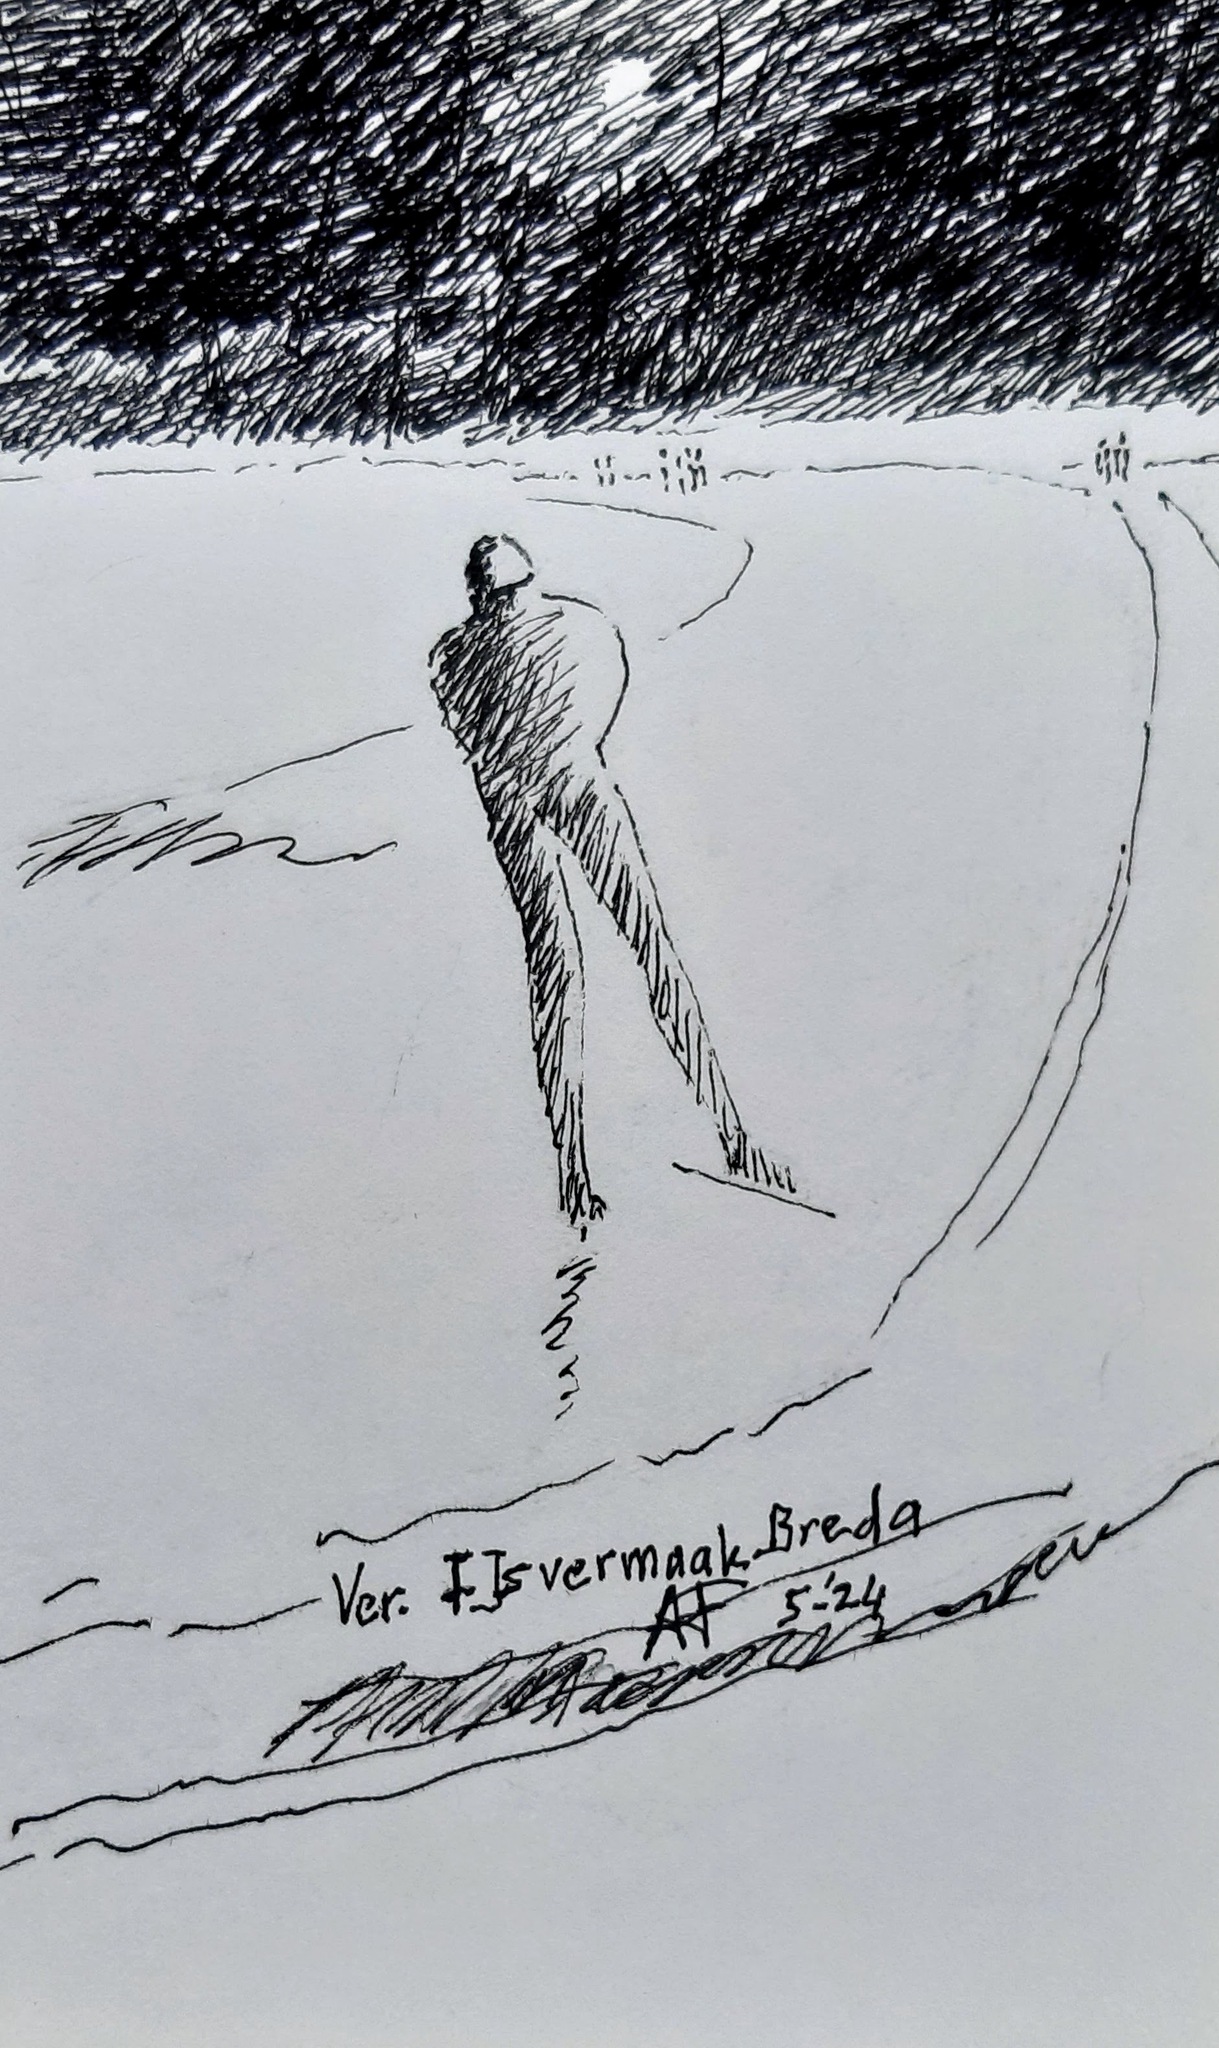 Ver. IJsvermaak Breda
AF 5-'24